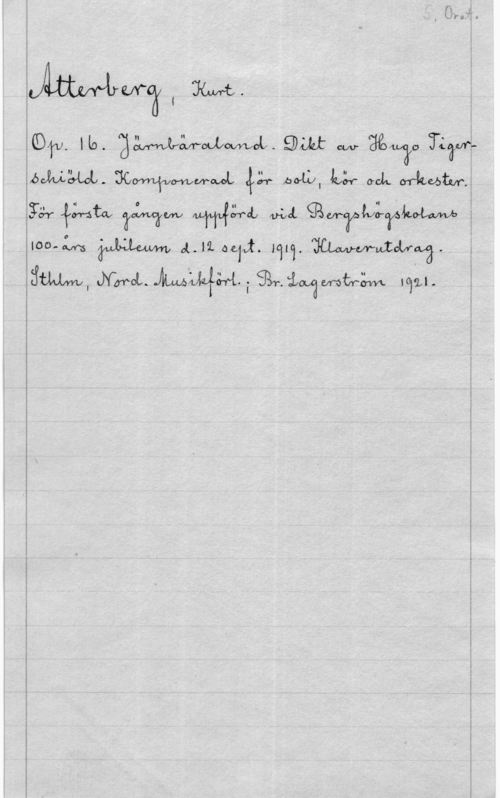 S, Orat.
Atterberg, Kurt.
Op. 16. Järnbäraland. Dikt av Hugo Tiger-
schiöld. Komponerad för soli, kör och orkester.
För första gången uppförd vid Bergshögskolans
100-års jubileum d. 12 sept. 1919. Klaverutdrag.
Sthlm, Nord. Musikförl.; Br. Lagerström 1921.